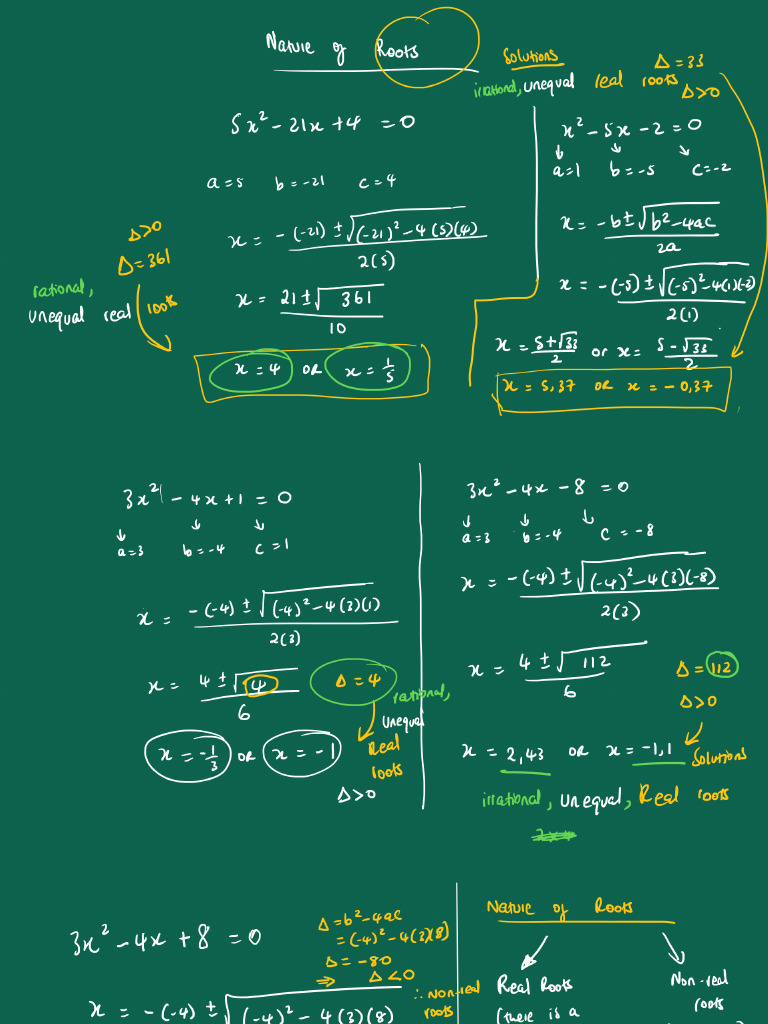 Nature of Roots
Solutions
Δ = 33
irrational, unequal real roots
Δ>0
5x² - 21x + 4 = 0
a = 5 b = -21 c = 4
x = -(-21) ± √(-21)² - 4(5)(4) / 2(5)
Δ>0
Δ = 361
rational,
unequal real roots
x = 21 ± √361 / 10
x = 4 OR x = 1/5
x² - 5x - 2 = 0
a=1 b = -5 c = -2
x = -b ± √b² - 4ac / 2a
x = -(-5) ± √(-5)² - 4(1)(-2) / 2(1)
x = 5+√33 / 2 or x = 5-√33 / 2
x = 5,37 OR x = -0,37
3x² - 4x + 1 = 0
a=3 b = -4 c = 1
x = -(-4) ± √(-4)² - 4(3)(1) / 2(3)
x = 4 ± √4 / 6
Δ = 4
rational,
unequal
Real
roots
x = -1/3 OR x = -1
Δ>0
3x² - 4x - 8 = 0
a=3 b = -4 c = -8
x = -(-4) ± √(-4)² - 4(3)(-8) / 2(3)
x = 4 ± √112 / 6
Δ = 112
Δ>0
x = 2,43 OR x = -1,1
Solutions
irrational, unequal, Real roots
3x² - 4x + 8 = 0
Δ = b² - 4ac
= (-4)² - 4(3)(8)
Δ = -80
⇒ Δ<0
∴ non-real
roots
x = -(-4) ± √(-4)² - 4(3)(8)
Nature of Roots
Real Roots
(there is a
Non-real
roots